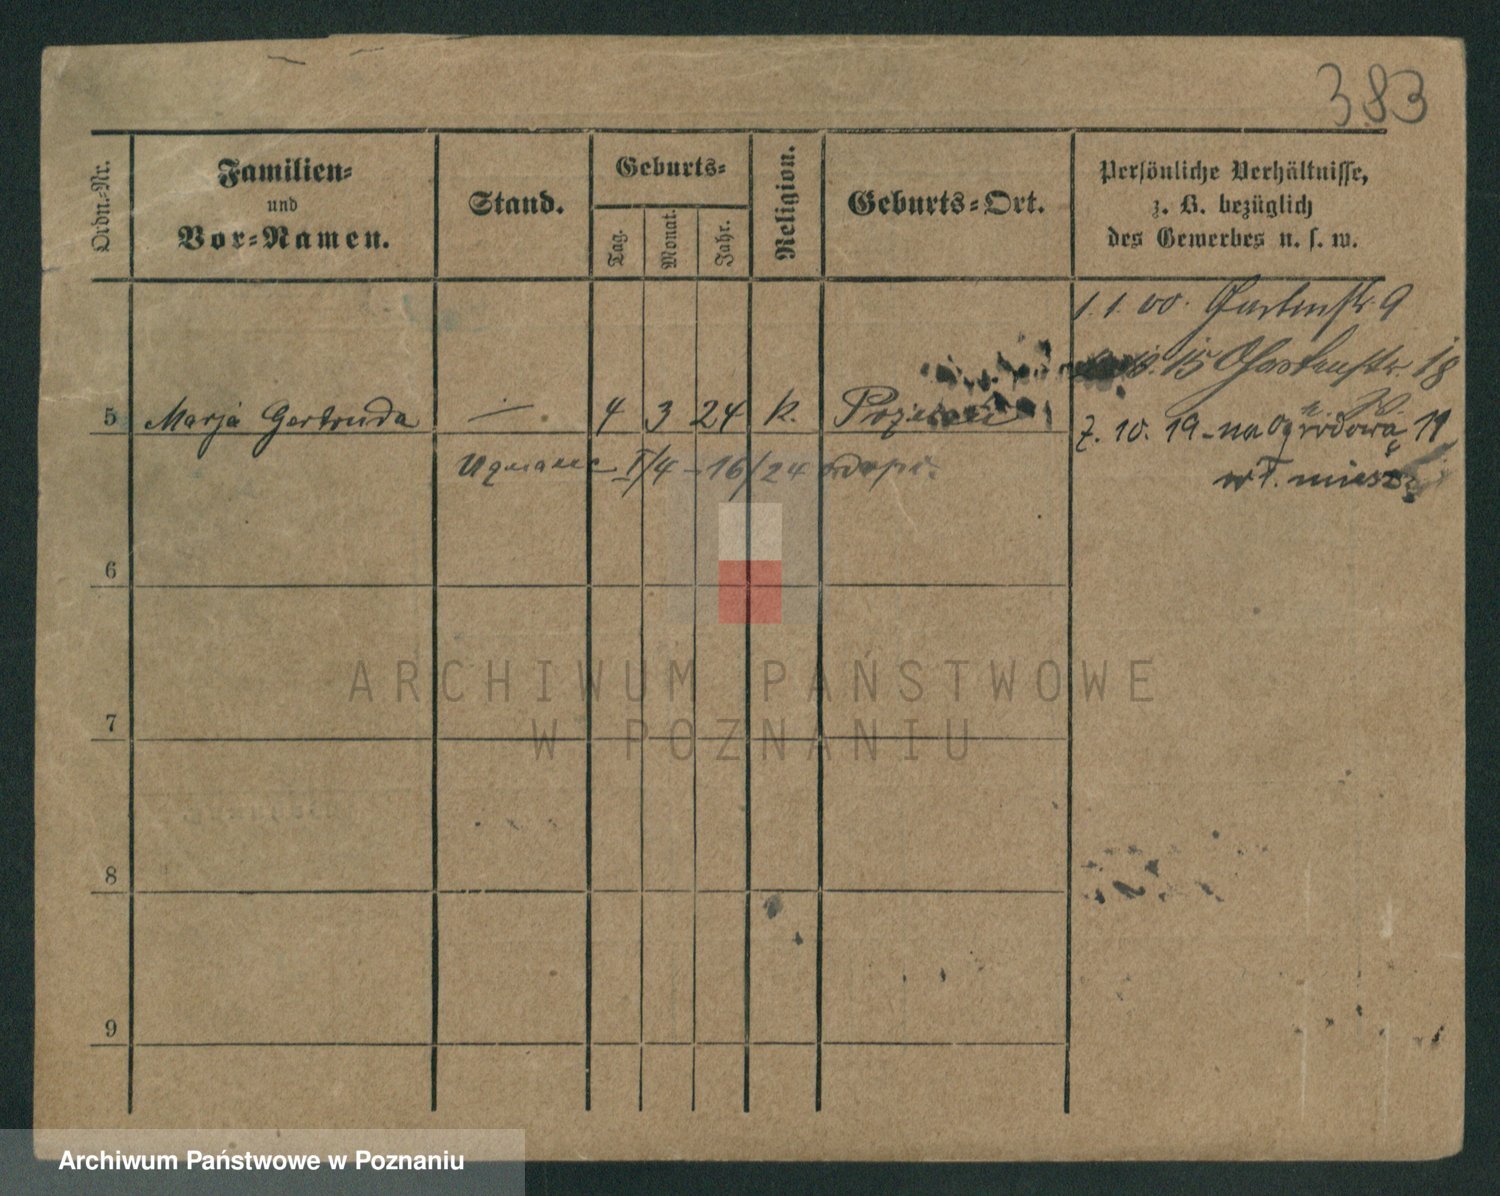 383
Ordn.-Nr.
Familien-
und
Vor-Namen.
Stand.
Geburts-
Tag.
Monat.
Jahr.
Religion.
Geburts-Ort.
Persönliche Verhältnisse,
z. B. bezüglich
des Gewerbes u. s. w.
1. 1. 00. Gartenstr. 9
15 Gartenstr. 18
5 Marja Gertruda — 4 3 24 k. Poznań
7. 10. 19 - na Ogrodową 11
I/4 - 16/24 odopi.
wł. miesz.
6
7
8
9
ARCHIWUM PAŃSTWOWE
W POZNANIU
Archiwum Państwowe w Poznaniu